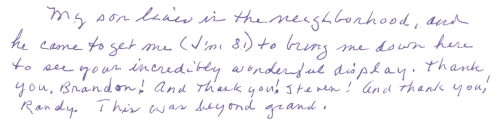 My son lives in the neighborhood, and
he came to get me (I'm 81) to bring me down here
to see your incredibly wonderful display. Thank
you, Brandon! And thank you, Steven! And thank you,
Randy. This was beyond grand.